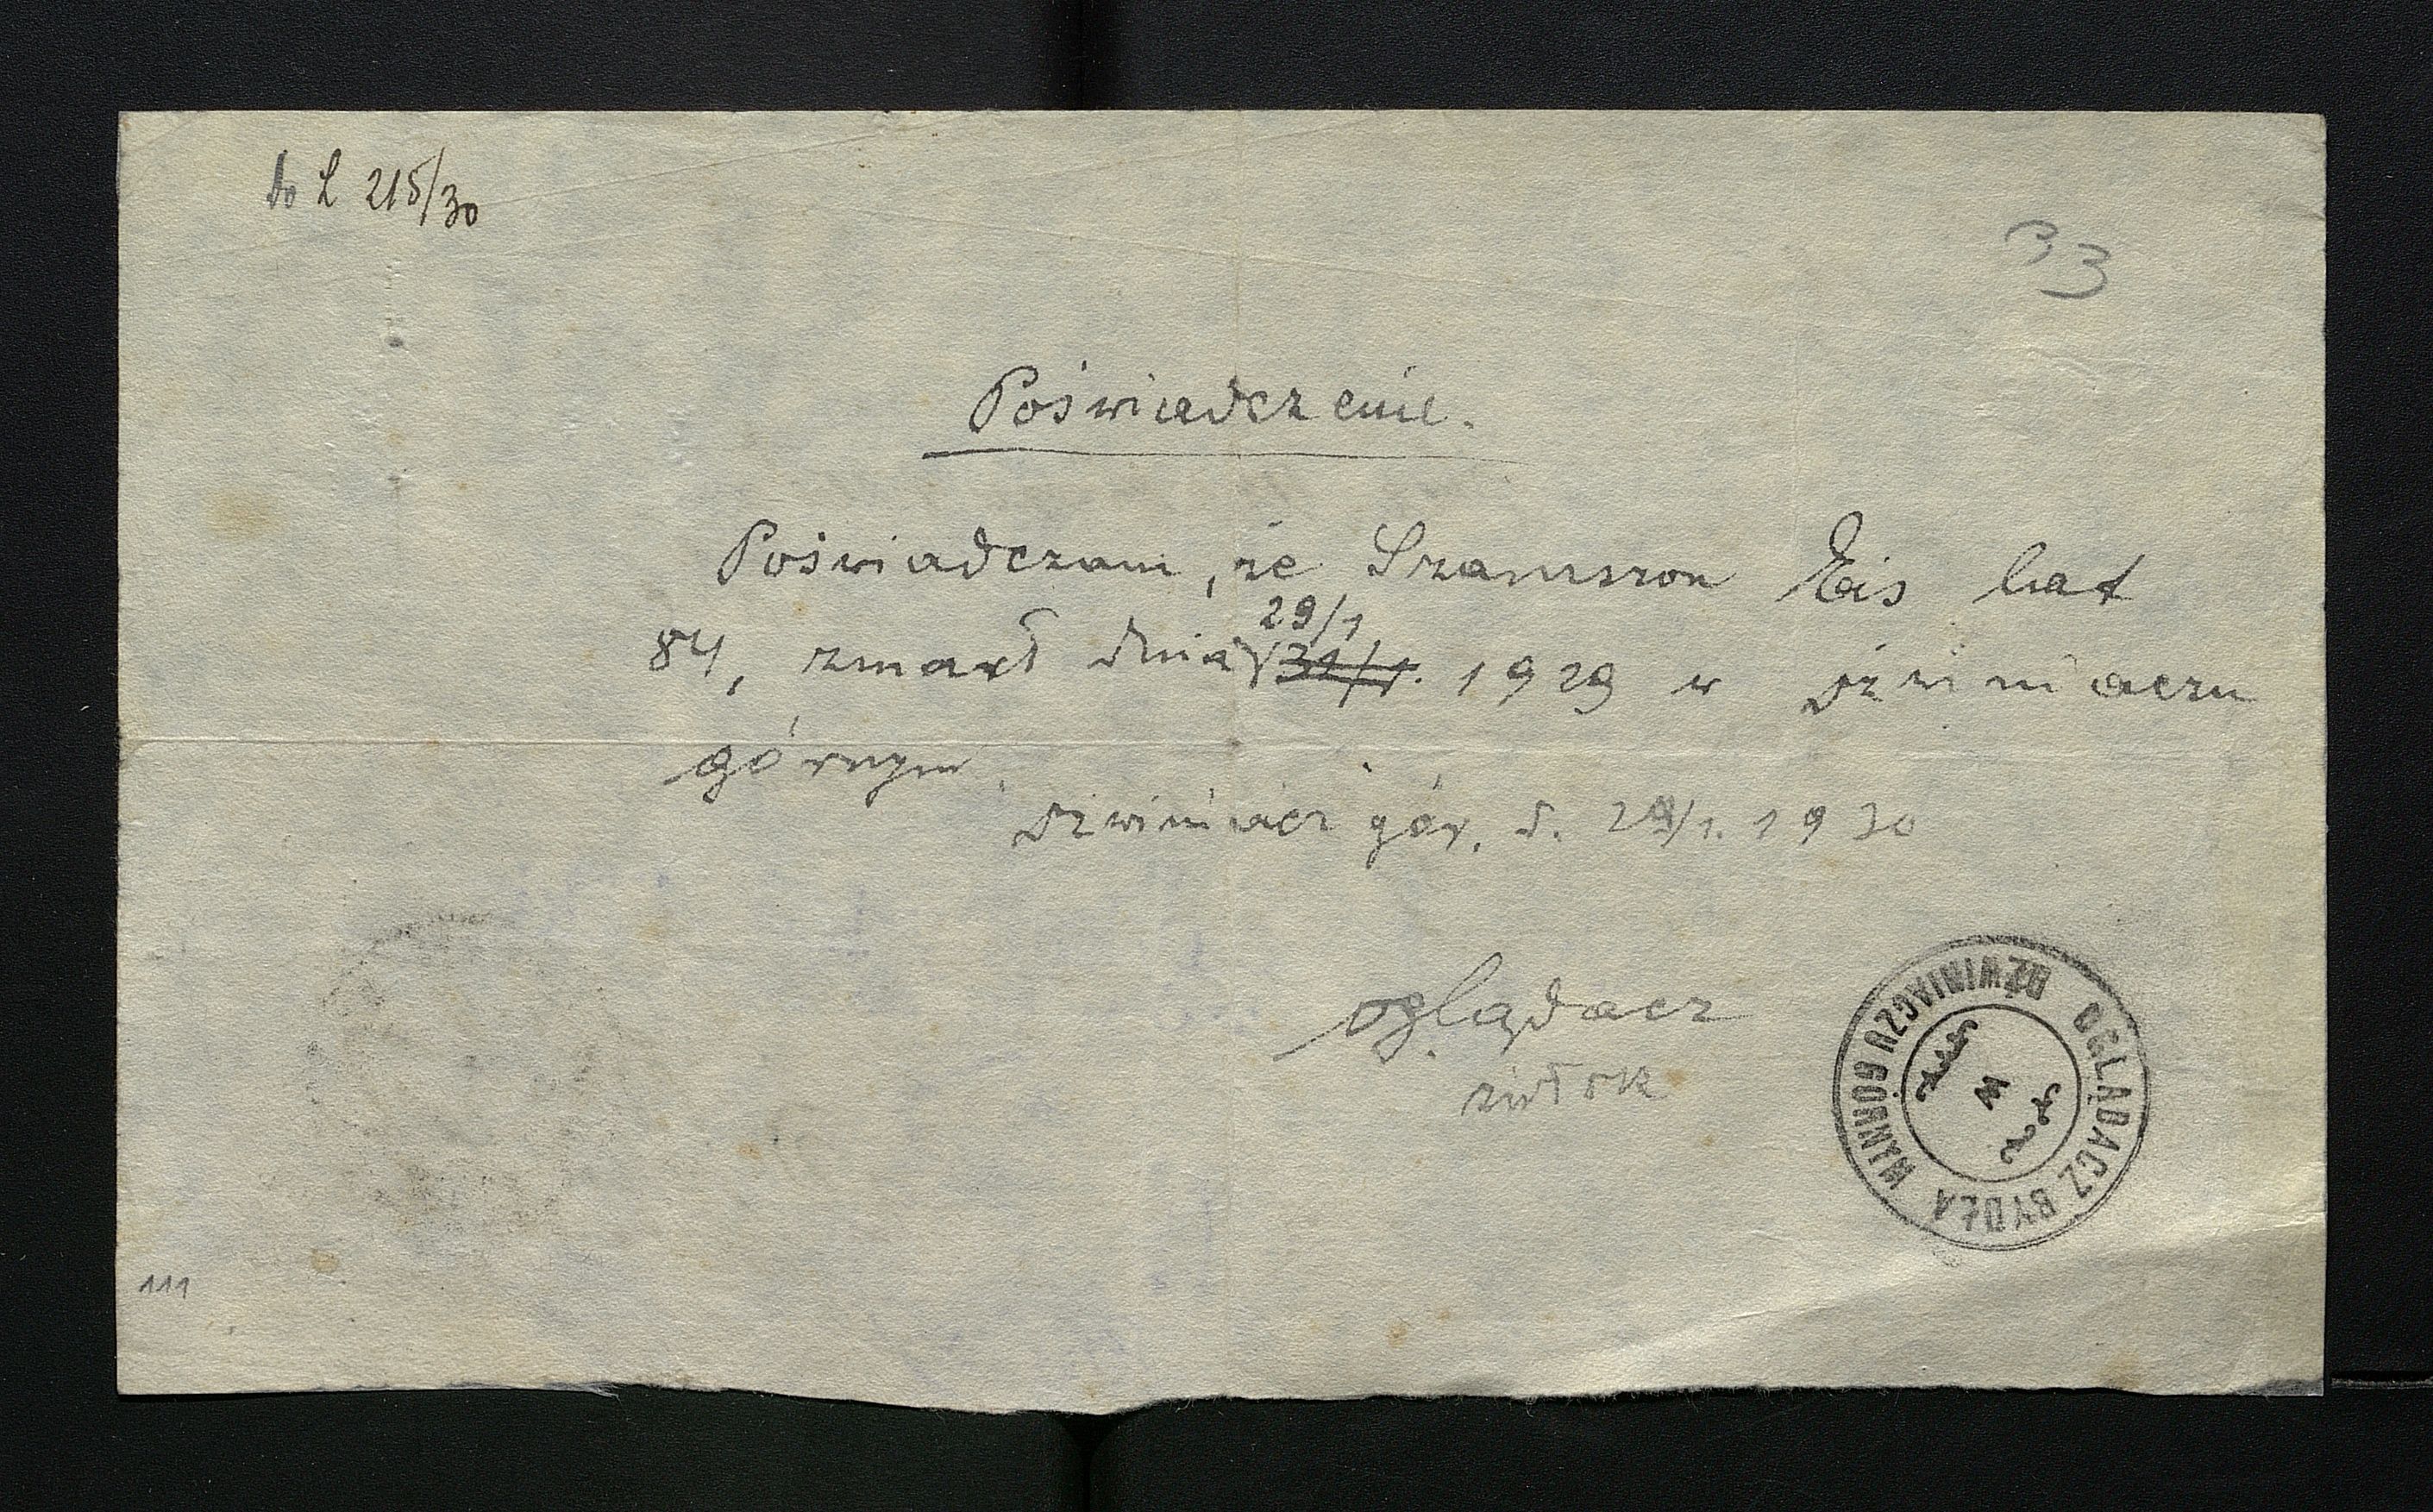 do L 215/30
33
Poświadczenie.
Poświadczam, że Szamszon Eis lat
29/1
84, zmarł dnia 31/1. 1929 w Dźwiniaczu
górnym.
Dźwiniacz gór. d. 29/1. 1930
oglądacz
zwłok
OGLĄDACZ BYDŁA W DŹWINIACZU GÓRNYM
111